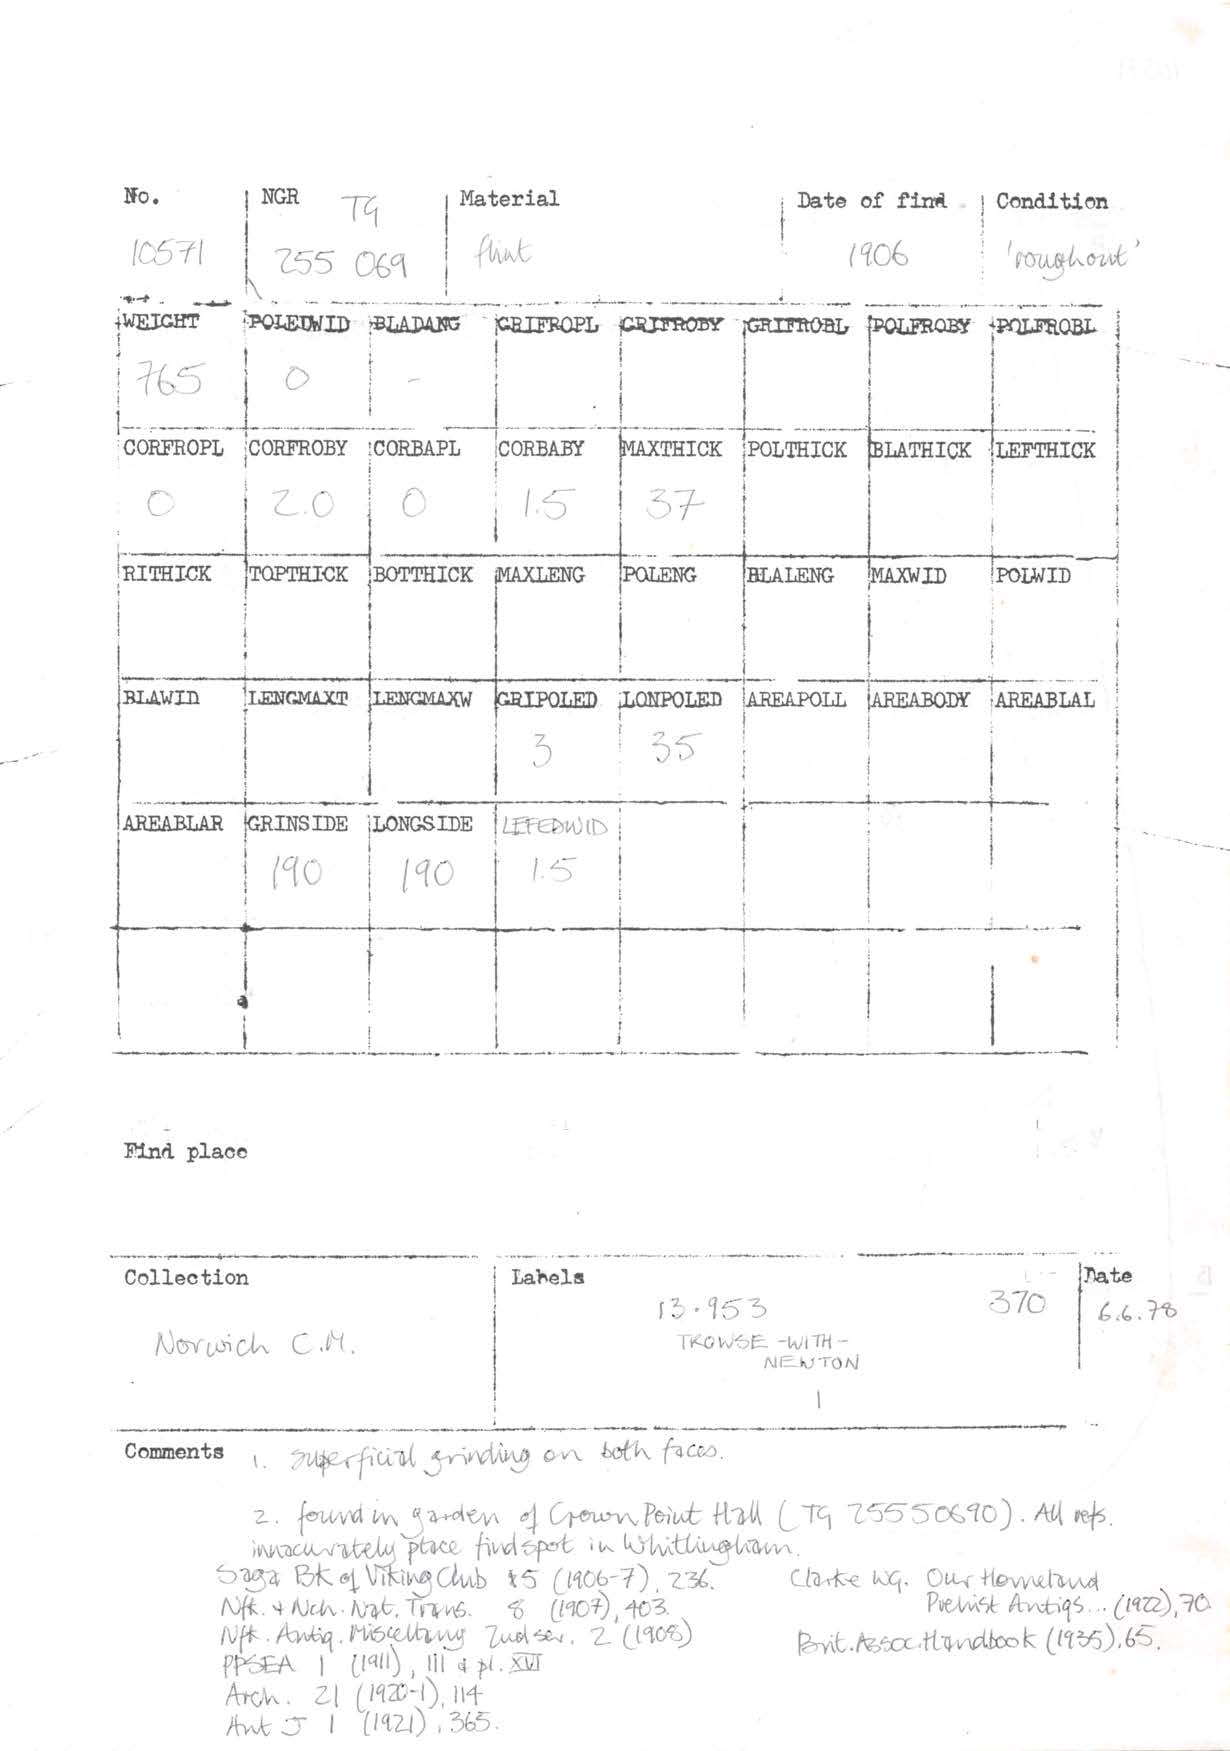 No. NGR TG Material Date of find Condition
10571 255 069 flint 1906 'roughout'
WEIGHT POLEDWID BLADANG GRIFROPL GRIFROBY GRIFROBL POLFROBY POLFROBL
765 0 -
CORFROPL CORFROBY CORBAPL CORBABY MAXTHICK POLTHICK BLATHICK LEFTHICK
0 2.0 0 1.5 37
RITHICK TOPTHICK BOTTHICK MAXLENG POLENG BLALENG MAXWID POLWID
BLAWID LENGMAXT LENGMAXW GRIPOLED LONPOLED AREAPOLL AREABODY AREABLAL
3 35
AREABLAR GRINSIDE LONGSIDE LEFEDWID
190 190 1.5
Find place
Collection Labels Date
Norwich C.M. 13.953 370 6.6.78
TROWSE-WITH-
NEWTON
1
Comments 1. superficial grinding on both faces.
2. found in garden of Crown Point Hall (TG 25550690). All refs.
innacurately place findspot in Whitlingham.
Saga Bk of Viking Club 5 (1906-7), 236.
Nfk. & Nch. Nat. Trans. 8 (1907), 403.
Nfk. Antiq. Miscellany 2nd ser. 2 (1908)
PPSEA 1 (1911), 111 & pl. XVI
Arch. 21 (1920-1), 114
Ant J 1 (1921), 365.
Clarke WG. Our Homeland
Prehist Antiqs... (1922), 70.
Brit. Assoc. Handbook (1935), 65.